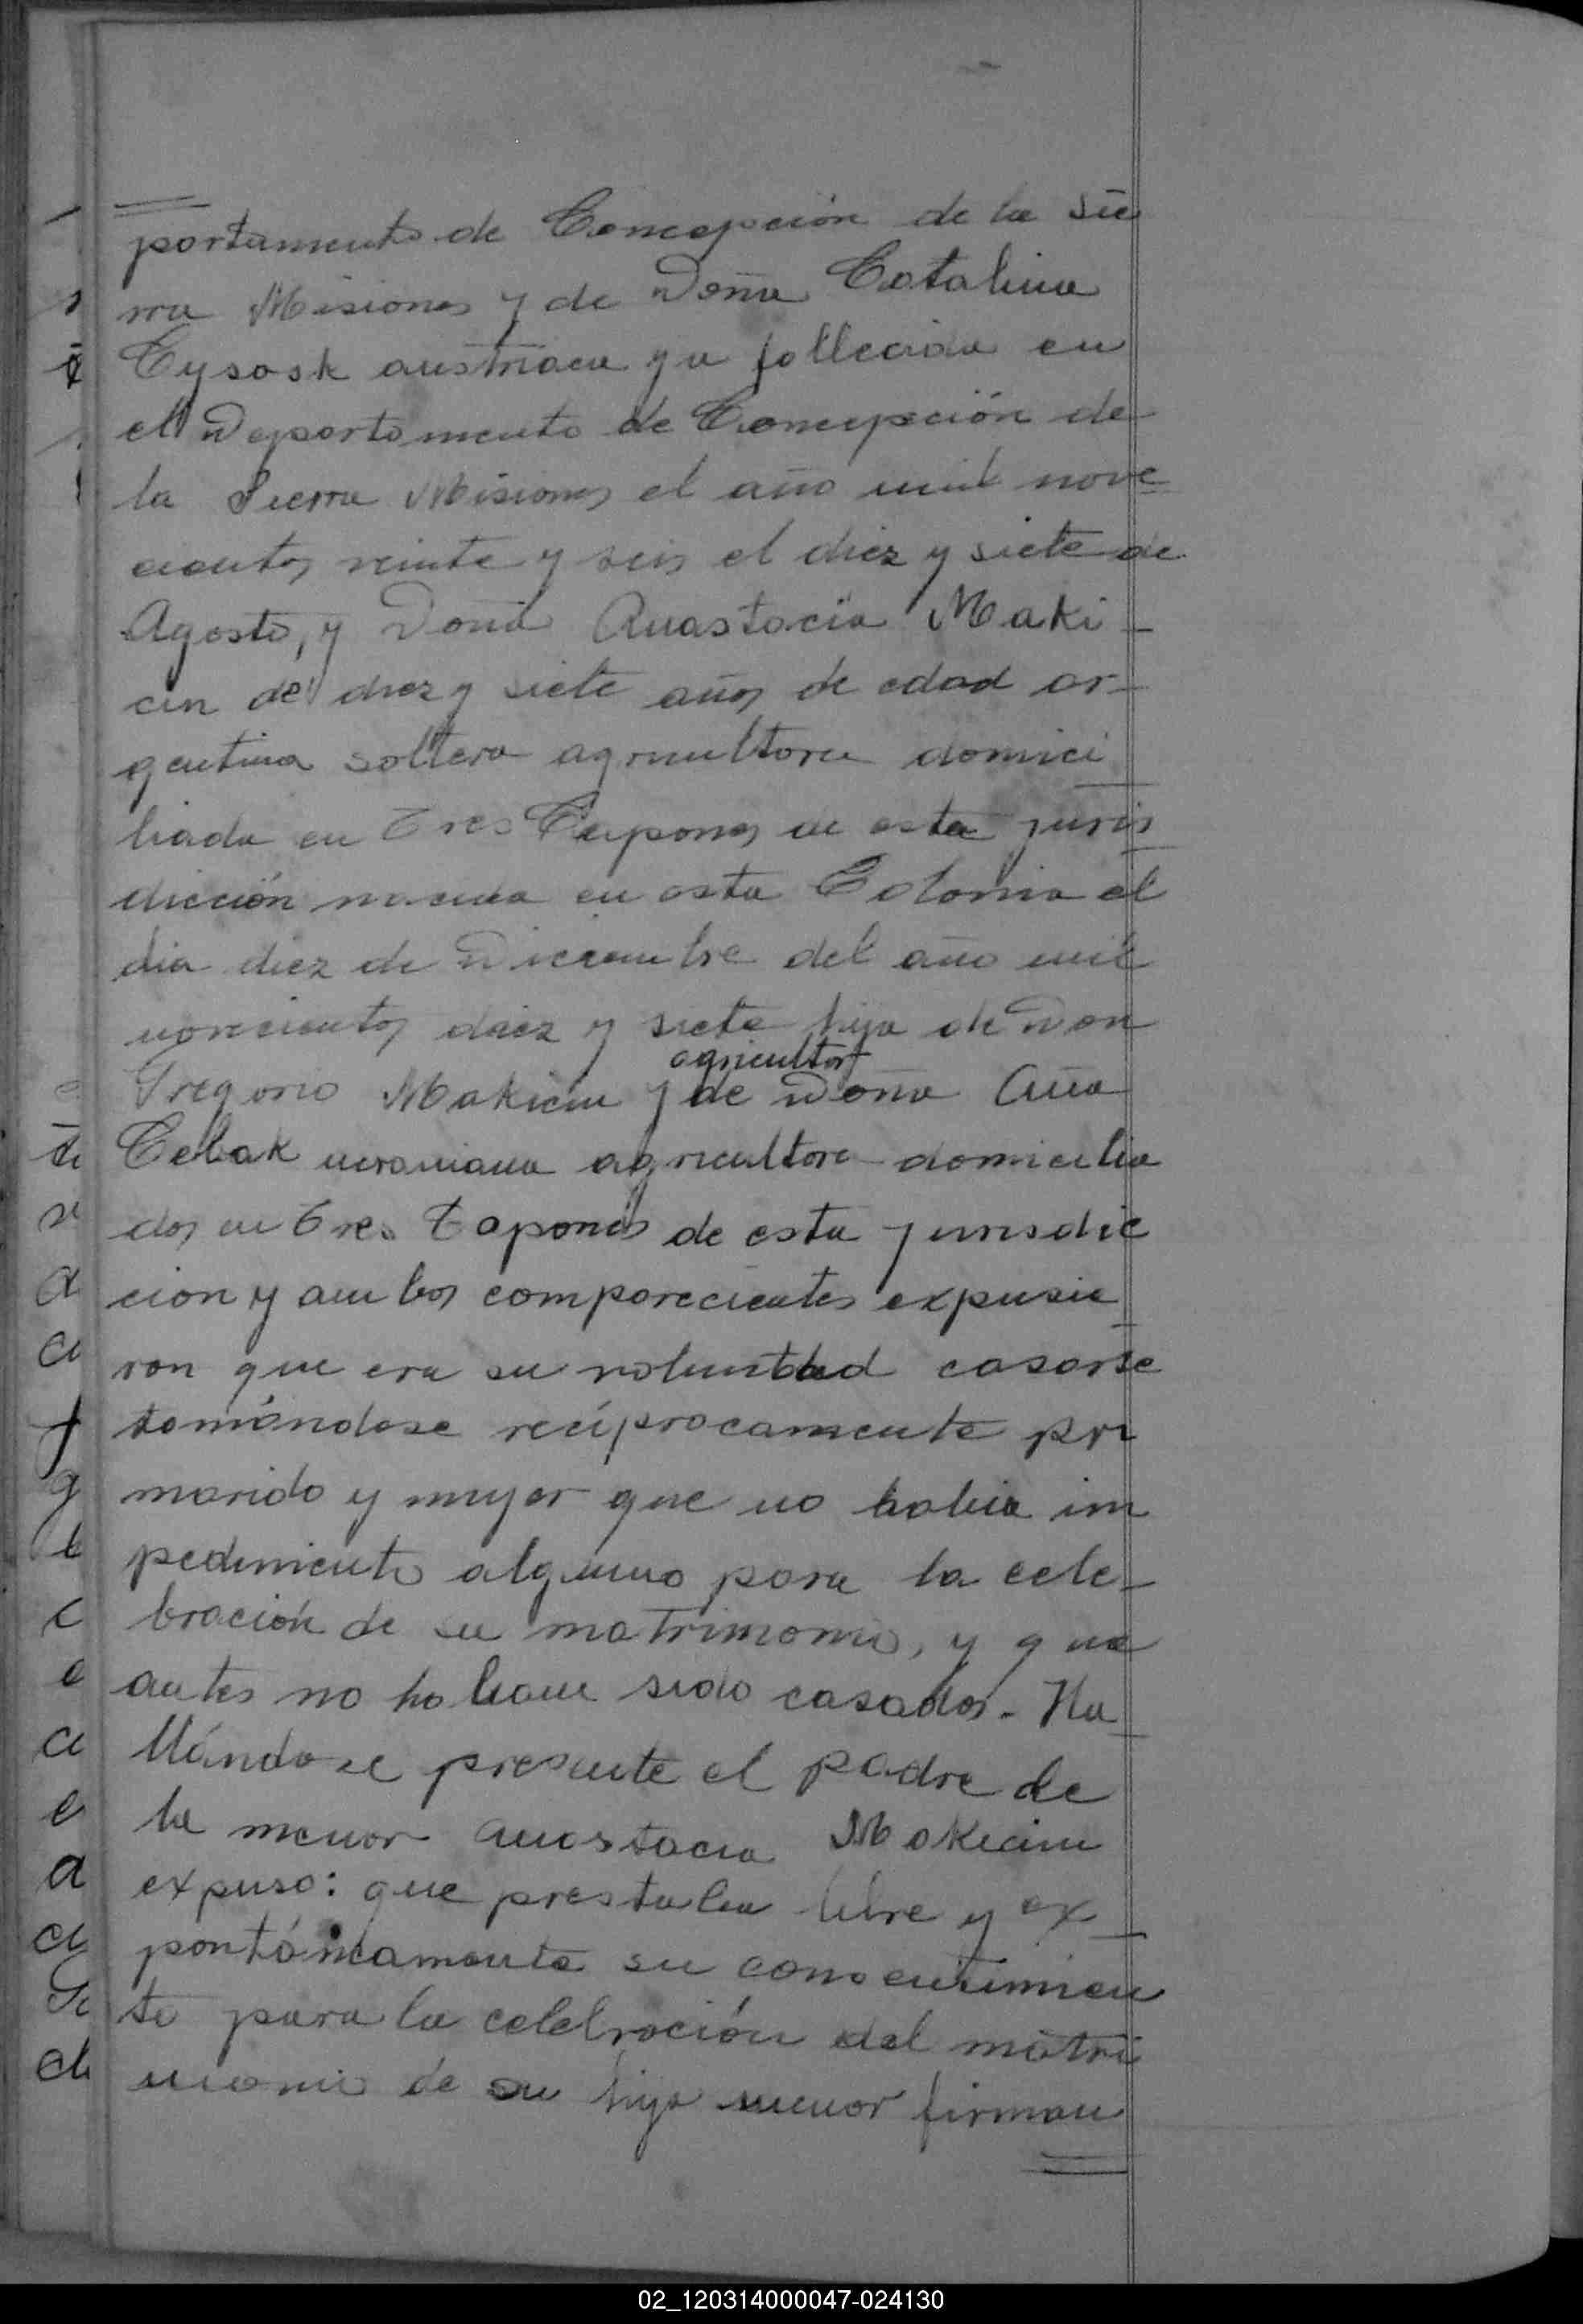 portamento de Concepción de la Sie
rra Misiones y de Doña Catalina
Cysosk austriaca ya fallecida en
el Departamento de Concepción de
la Sierra Misiones el año mil nove
cientos veinte y seis el diez y siete de
Agosto, y Doña Anastacia Maki-
cin de diez y siete años de edad ar-
gentina soltera agricultora domici
liada en Tres Capones de esta juris
dicción nacida en esta Colonia el
dia diez de Diciembre del año mil
novecientos diez y siete hija de Don
agricultor
Gregorio Makicin y de Doña Ana
Cebak ucraniana agricultora domicilia
dos en Tres Capones de esta jurisdic
cion y ambos comparecientes expusie
ron que era su voluntad casarse
tomándose recíprocamente por
marido y mujer que no habia im
pedimiento alguno para la cele-
bración de su matrimonio, y que
antes no habian sido casados. Ha
llándose presente el padre de
la menor Anastacia Makicin
expuso: que prestaba libre y ex
pontáneamente su consentimien
to para la celebración del matri
monio de su hija menor firman
02_120314000047-024130